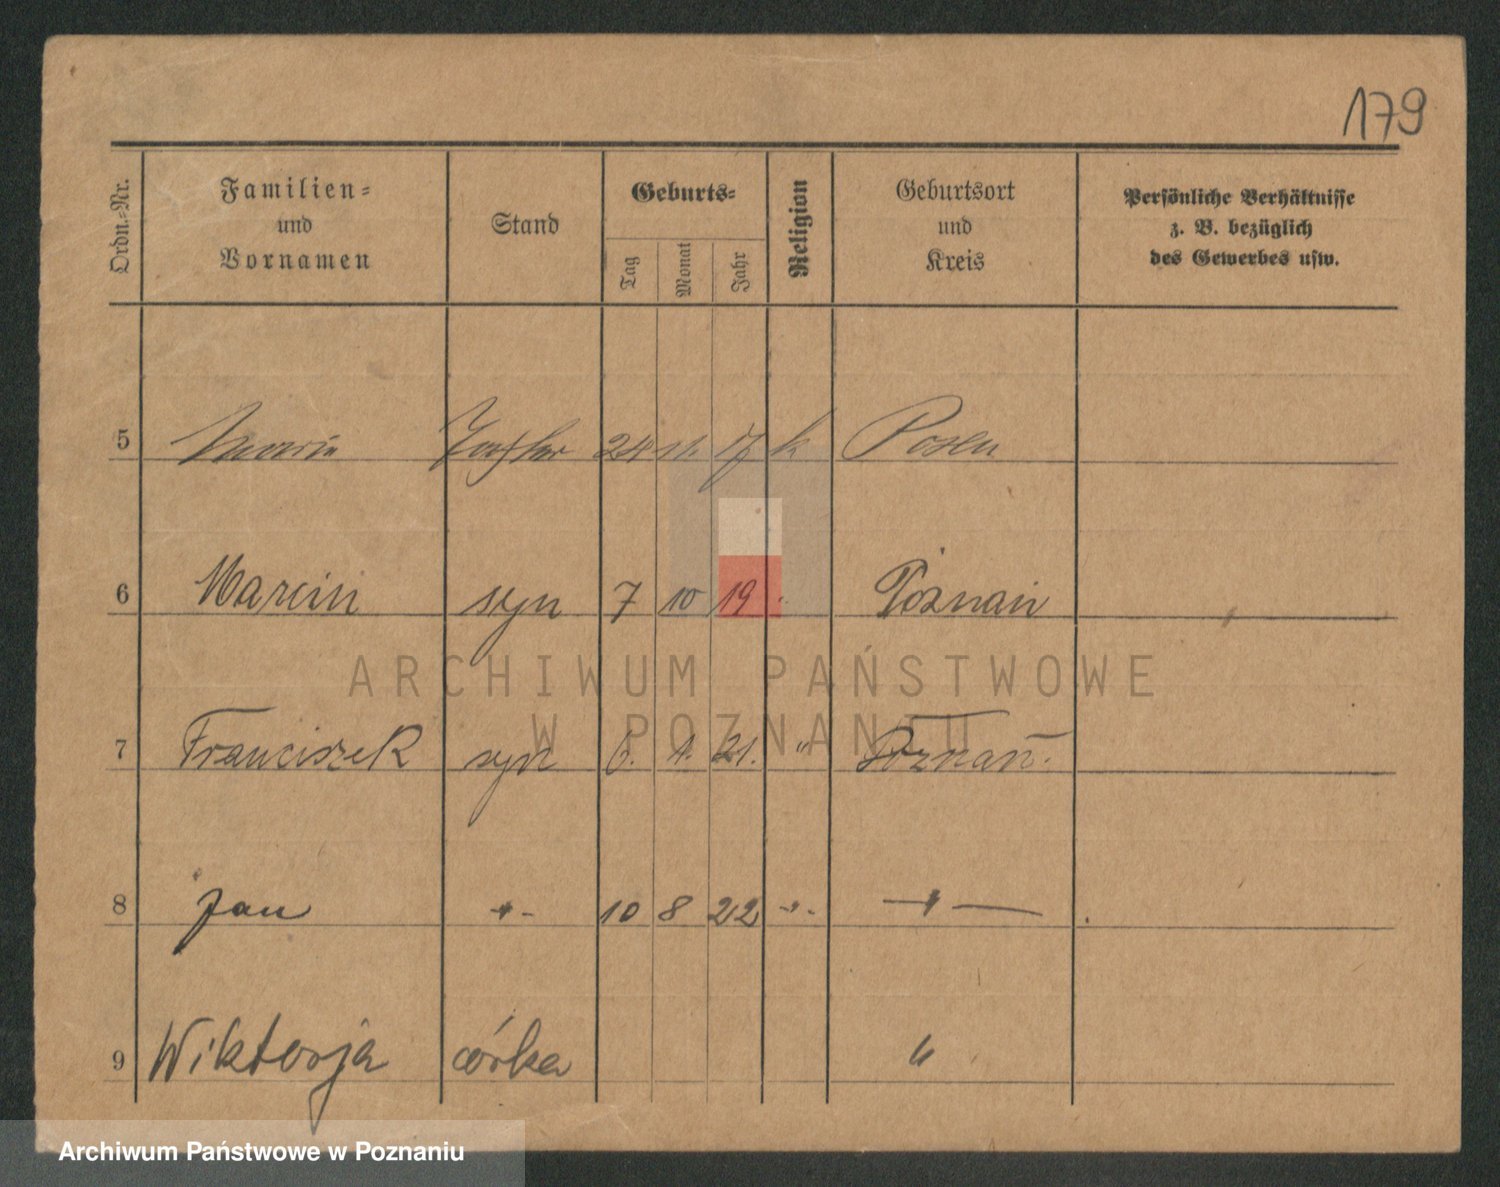 179
Ordn.-Nr.
Familien-
und
Vornamen
Stand
Geburts-
Tag
Monat
Jahr
Religion
Geburtsort
und
Kreis
Persönliche Verhältnisse
z. B. bezüglich
des Gewerbes usw.
5 Maria Tochter 24 11. 17 k Posen
6 Marcin syn 7 10 19 Poznań
7 Franciszek syn 6. 1. 21. " Poznań.
8 Jan -"- 10 8 22 -"- —"—
9 Wiktorja córka "
ARCHIWUM PAŃSTWOWE
W POZNANIU
Archiwum Państwowe w Poznaniu